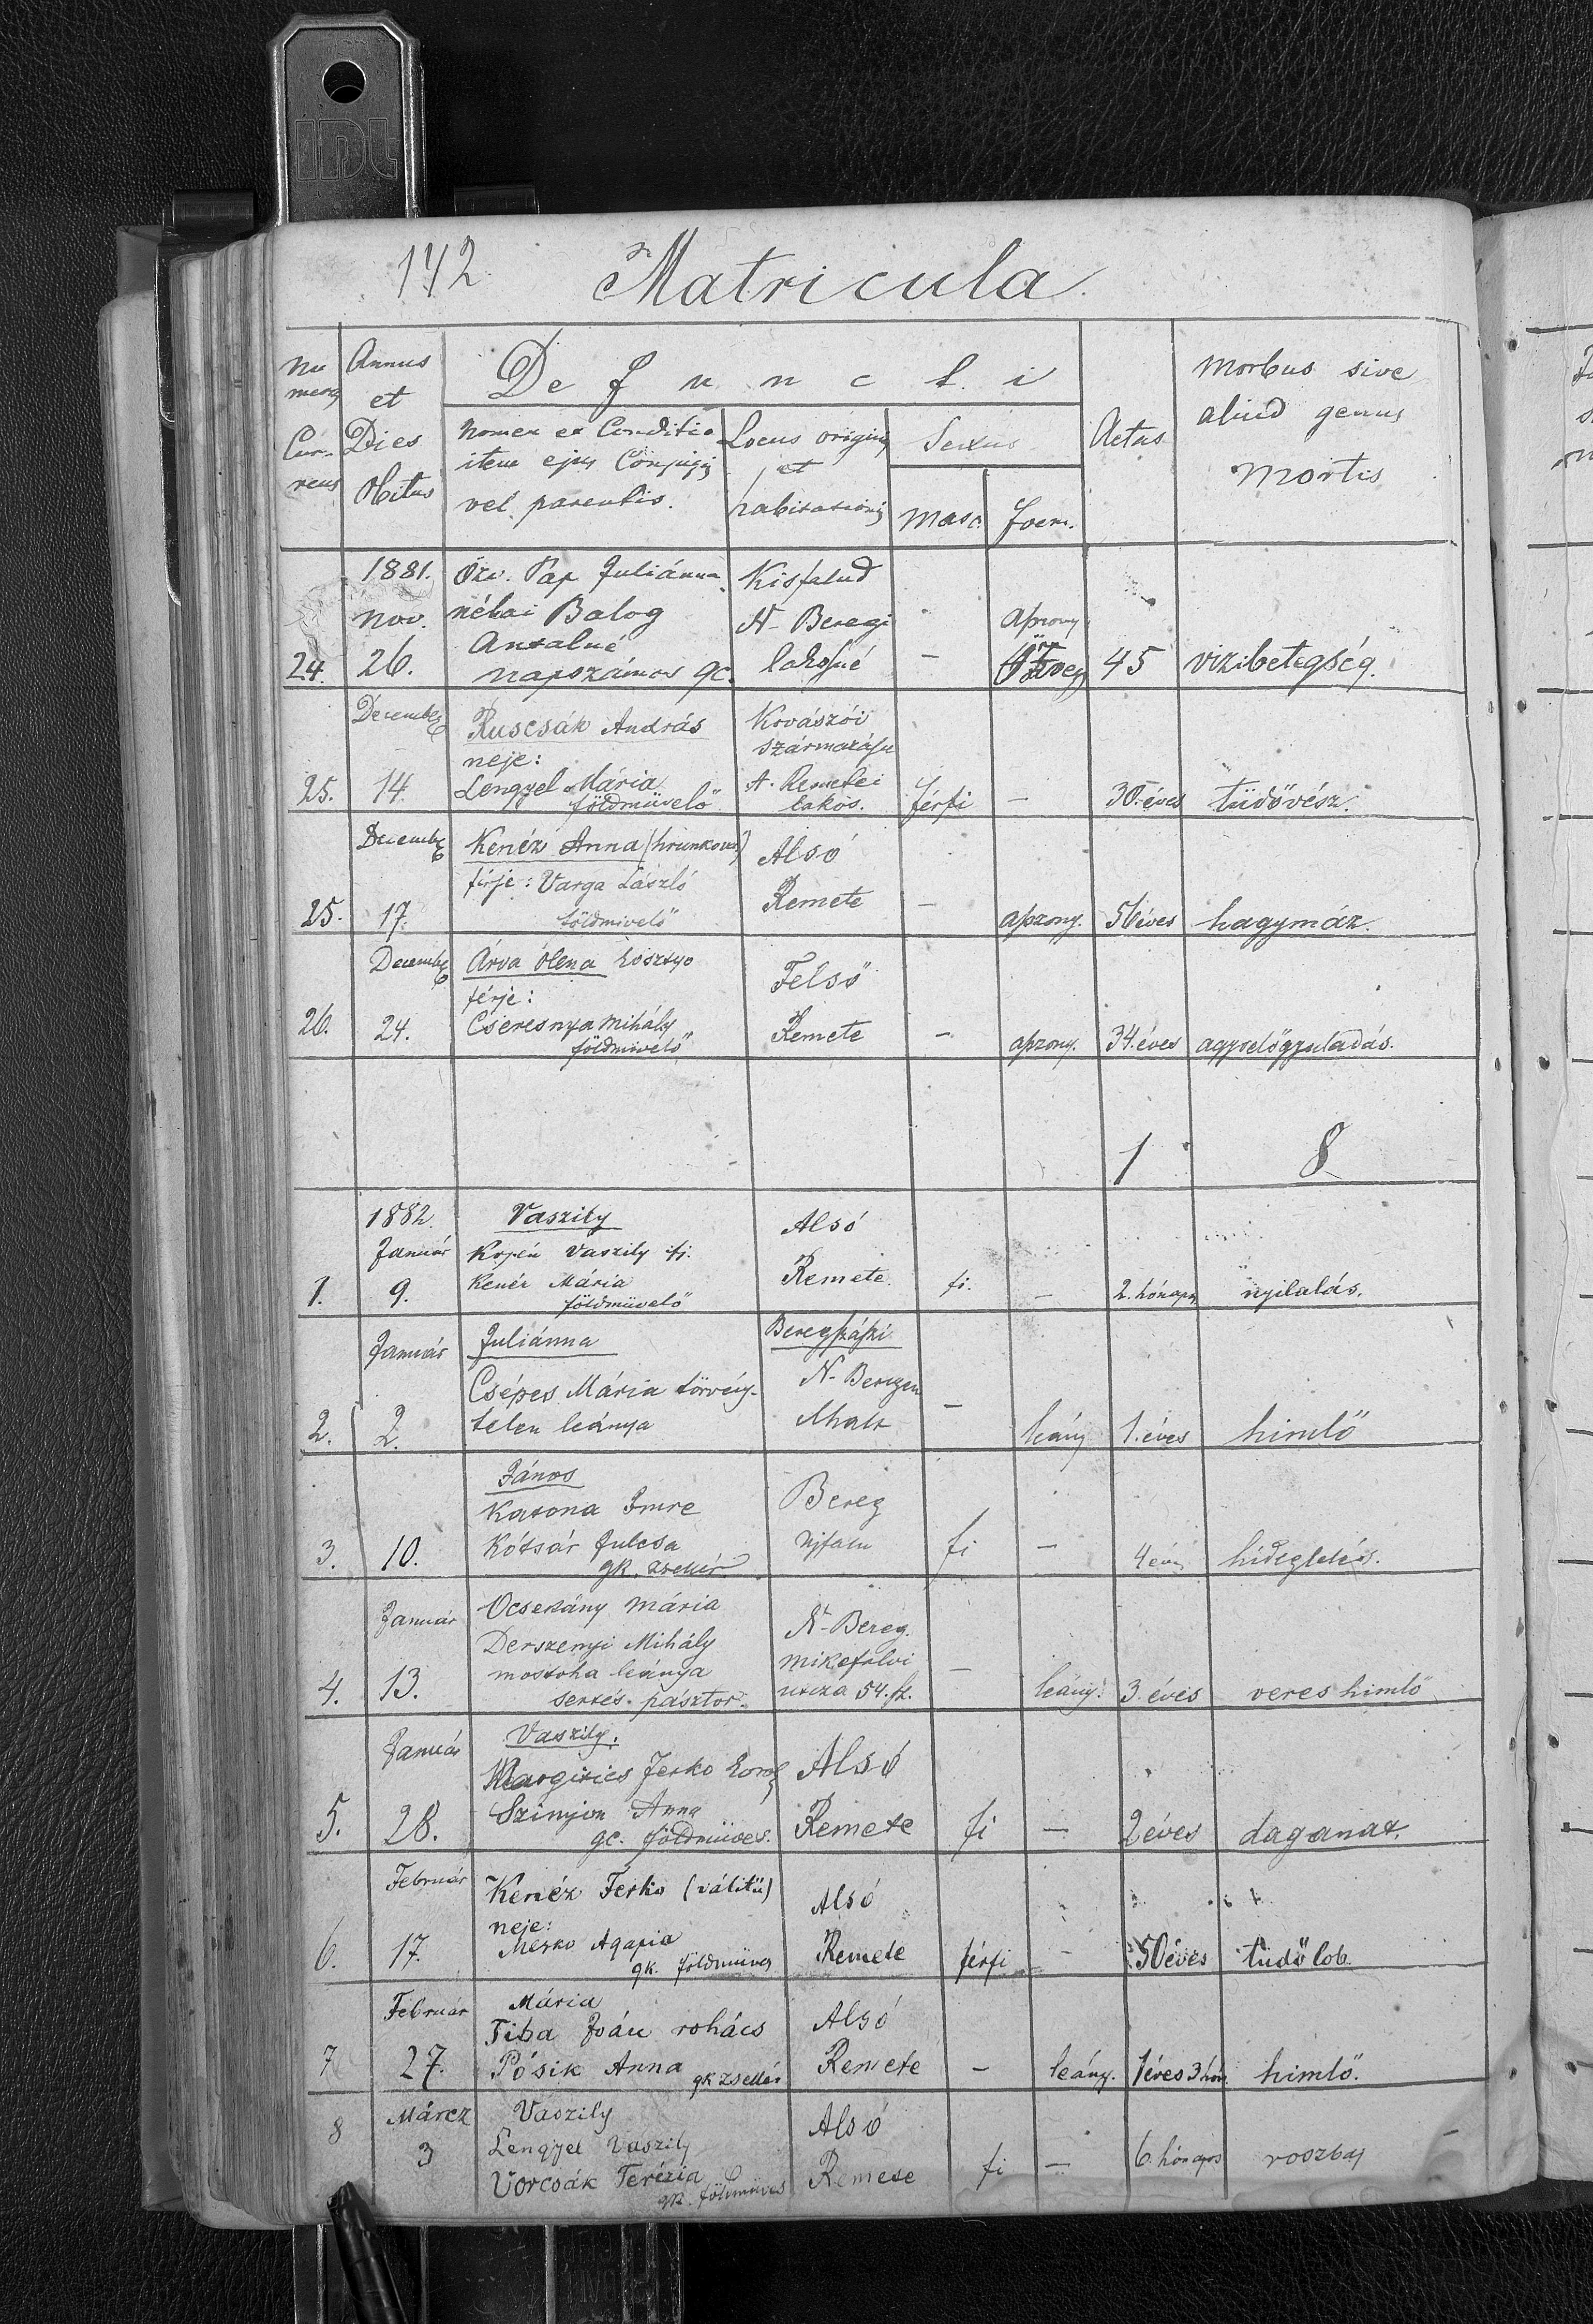 IDL
142
Matricula.
Nu
merus
Cur-
rens
Annus
et
Dies
Obitus
Defuncti
Nomen et Conditio
item ejus Conjugis
vel parentis.
Locus originis
et
habitationis
Sexus
Masc.
foem.
Aetas
Morbus sive
aliud genus
Mortis
24.
1881.
Nov.
26.
Özv. Pap Juliánna
néhai Balog
Antalné
napszámos gc.
Kisfalud
N-Beregi
lakosné
-
-
asszony
özveg
45
vizibetegség.
25.
December
14.
Ruscsák András
neje:
Lengyel Mária
földmüvelő
Kovászói
származásu
A. Remetei
lakos.
férfi
-
30. éves
tüdővész.
25.
December
17.
Kenéz Anna
férje: Varga László
földmivelő
Alsó
Remete
-
asszony.
56 éves
hagymáz.
26.
December
24.
Árva Olena
férje:
Cseresnya Mihály
földmivelő
Felső
Remete
-
asszony.
34. éves
agyvelőgyuladás.
1
8
1.
1882.
Január
9.
Vaszily
Vaszily fi.
Kenéz Mária
földmüvelő
Alsó
Remete.
fi.
-
2. hónapos
nyilalás.
2.
Január
2.
Juliánna
Csépes Mária törvény-
telen leánya
Beregszászi
N-Beregen
-
leány
1. éves
himlő
3.
10.
János
Katona Imre
Kótsár Julcsa
gk. zsellér
Bereg
Ujfalu
fi
-
4 éves
hideglelés.
4.
Január
13.
Mária
Derszenyi Mihály
mostoha leánya
sertés-pásztor.
N-Bereg.
Mikefalvi
utcza 54. sz.
-
leány.
3. éves
veres himlő
5.
Január
28.
Vaszily.
Margitics
Szinyon Anna
gc. földmüves.
Alsó
Remete
fi
-
2 éves
daganat.
6.
Február
17.
Kenéz Ferko
neje:
Mesko Agapia
gk. földmüves
Alsó
Remete
férfi
-
50 éves
tüdőlob.
7
Február
27.
Mária
Tiba Iván rohács
Pósik Anna gk zsellér
Alsó
Remete
-
leány.
1 éves 3 hón.
himlő.
8
Márcz
3
Vaszily
Lengyel Vaszily
Vorcsák Terézia
gk. földmüves
Alsó
Remete
fi
-
6. hónapos
roszbaj